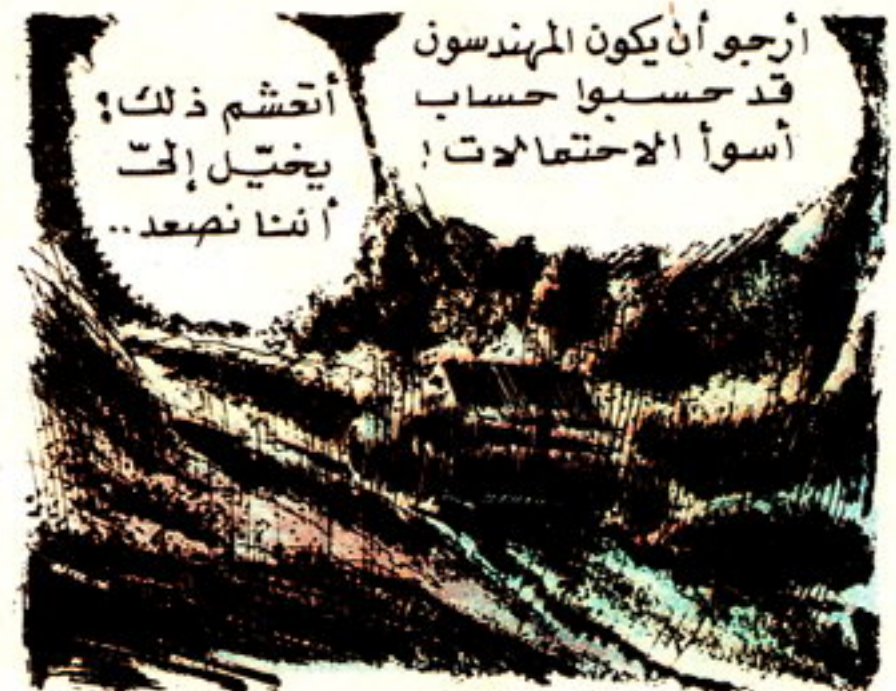 أرجو أن يكون المهندسون
قد حسبوا حساب
أسوأ الاحتمالات !
أتعشم ذلك؟
يخيّل إليّ
أننا نصعد..